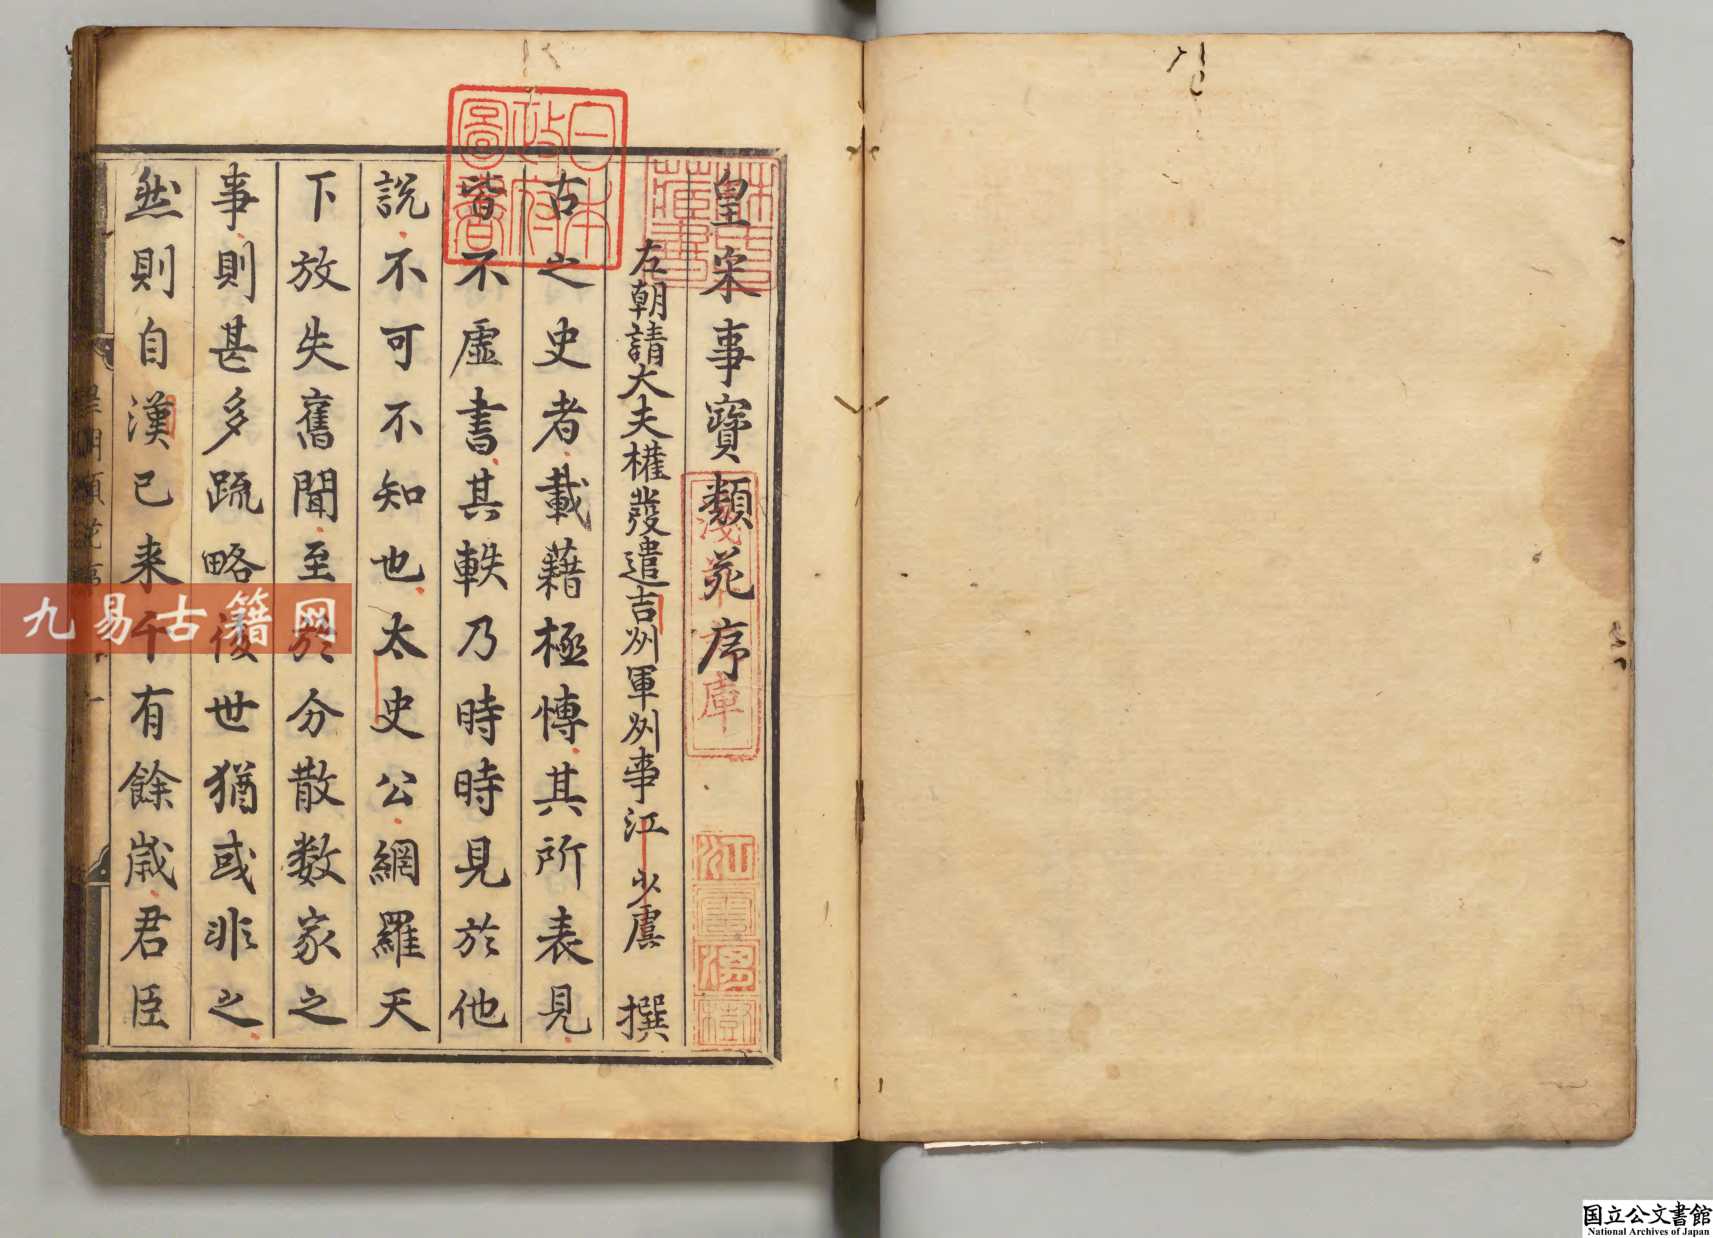 皇宋事寶類苑序
左朝請大夫權發遣吉州軍州事江少虞 撰
古之史者載藉極愽其所表見
皆不虛書其軼乃時時見於他
說不可不知也太史公網羅天
下放失舊聞至於分散数家之
事則甚多疏略後世猶或非之
然則自漢已来千有餘歳君臣
日本政府圖書
淺草文庫
江雲渭樹
九易古籍网
国立公文書館
National Archives of Japan